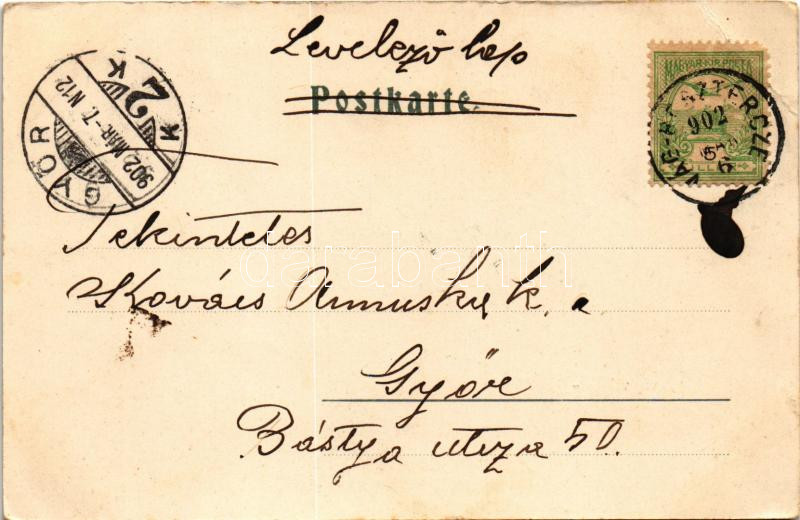 Levelező lap
Postkarte.
MAGYAR KIR. POSTA
902
6
GYŐR
902 MÁR. -7. N12
K 2 K
Tekintetes
Kovács Annuska k. a
Győr
Bástya utcza 50.
darabanth